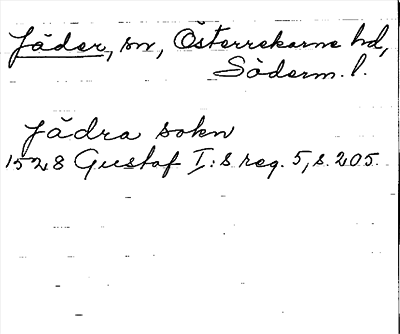 Jäder, sn, Österrekarne hd,
Söderm. l.
Jädra sokn
1528 Gustaf I:s reg. 5, s. 205.